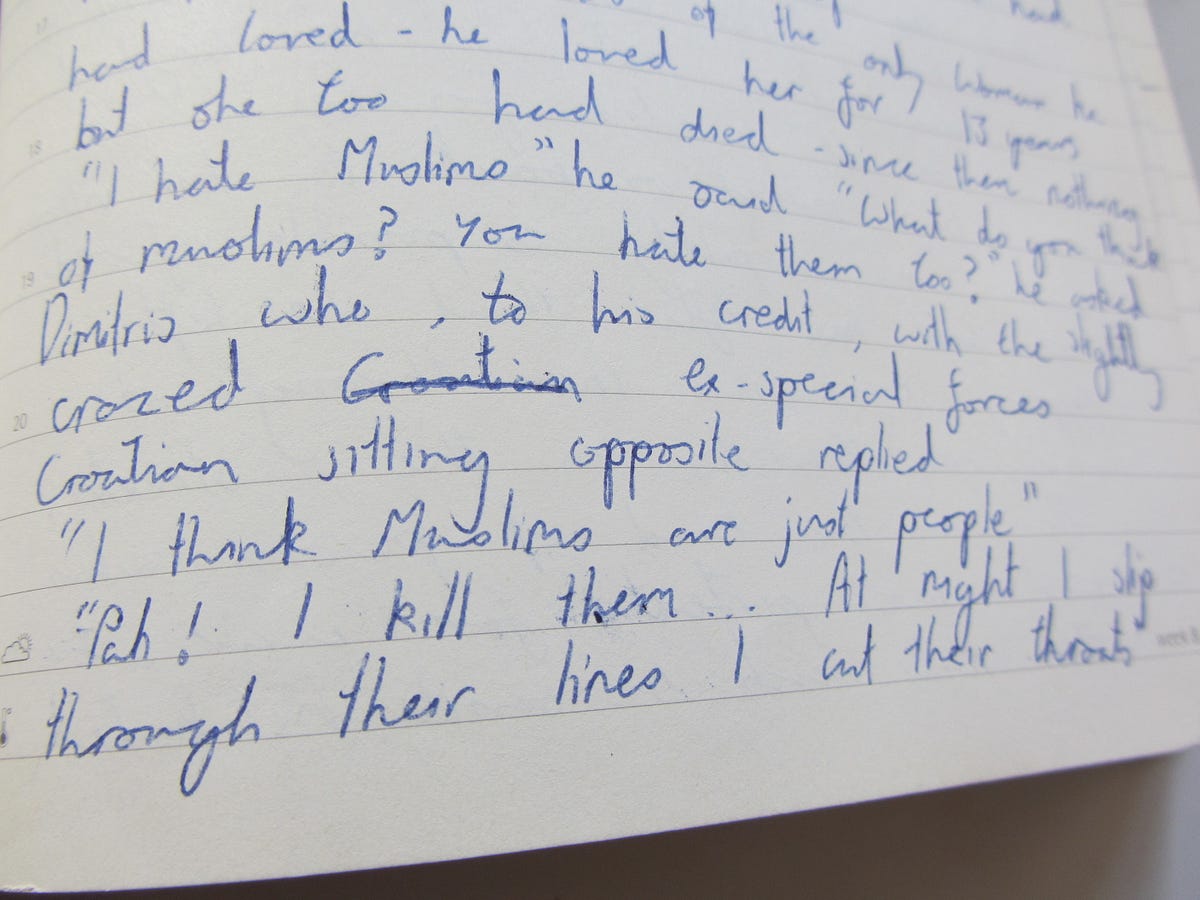 of the had
had loved - he loved her for only woman he
but she too had died - since then nothing 13 years
"I hate Muslims" he said "What do you think
of muslims? You hate them too?" he asked
Dimitris who, to his credit, with the slightly
crazed Croatian ex-special forces
Croatian sitting opposite replied
"I think Muslims are just people"
"Pah! I kill them... At night I slip
through their lines I cut their throats
17
18
19
20
week 8